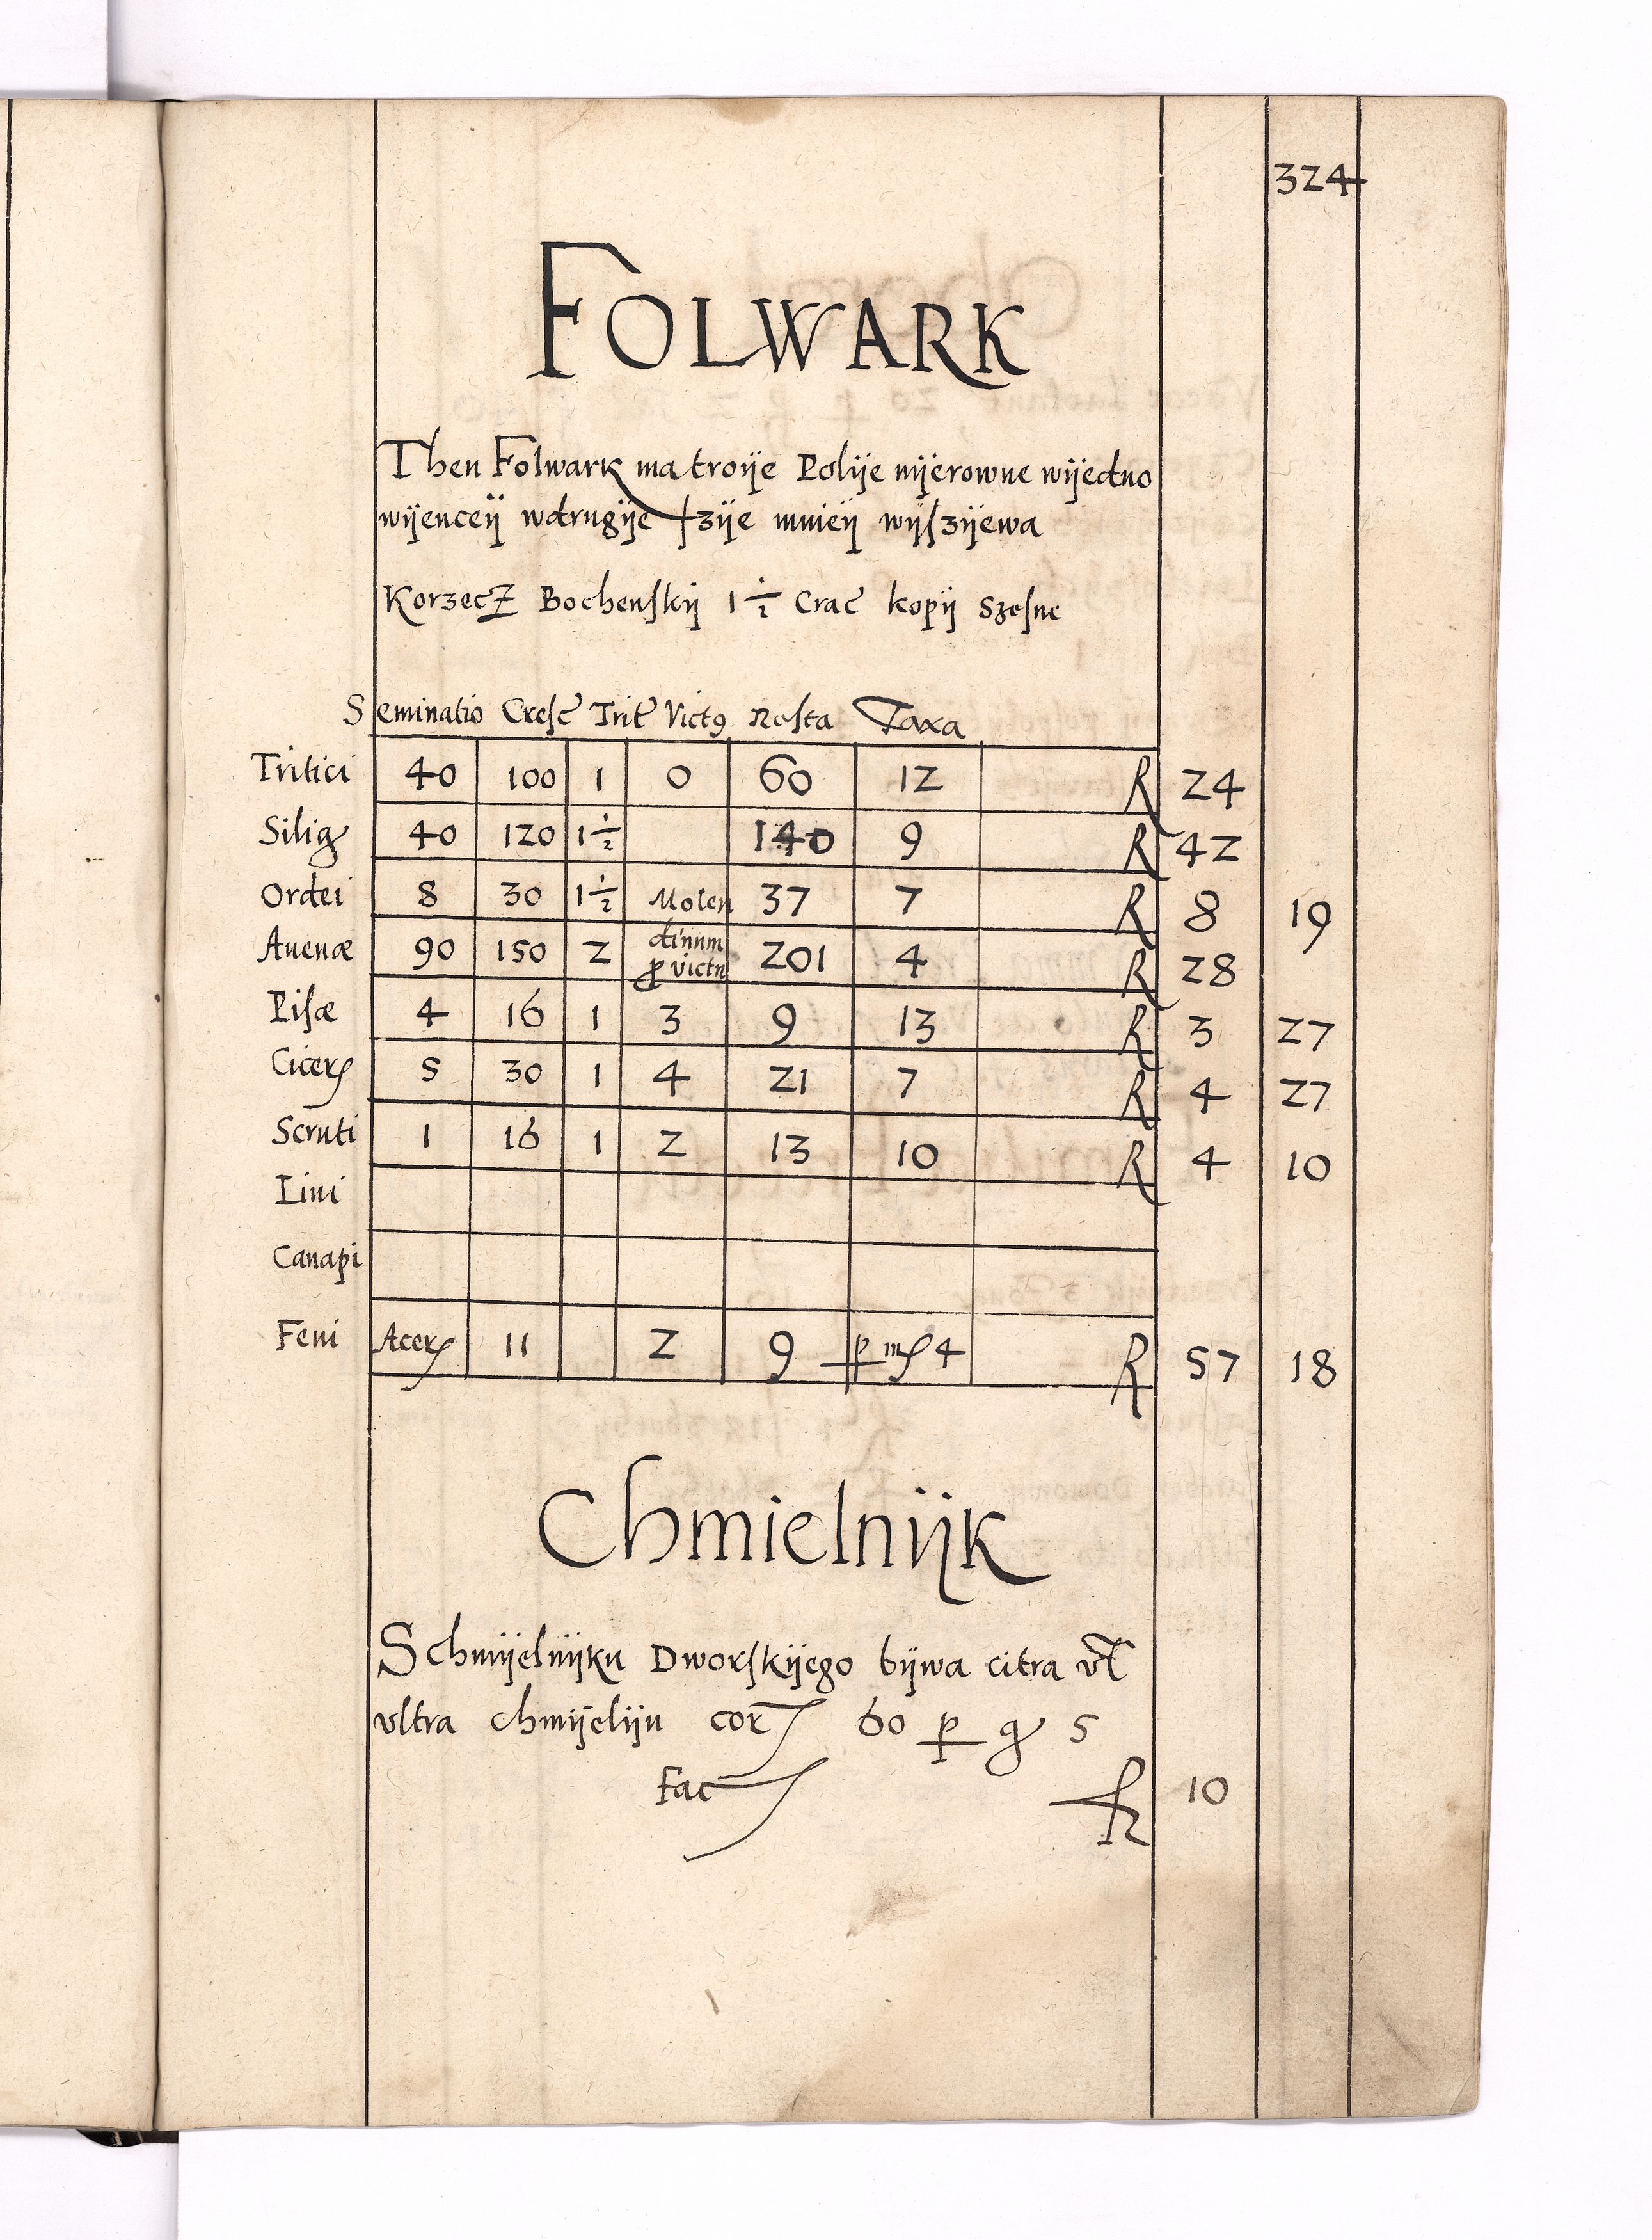 324
FOLWARK
Then Folwark ma troije Polije nijerowne wijedno
wijenceij wdrugije tzije mnieij wijſzijewa
Korzecz Bochenſkij 1 1/2 Crac kopij Szeſne
Seminatio Creſc Trit Victꝰ Reſta Taxa
Tritici 40 100 1 0 60 12 R 24
Silig 40 120 1 1/2 140 9 R 42
Ordei 8 30 1 1/2 Molen 37 7 R 8 19
Auenæ 90 150 2 dinum ꝓ victu 201 4 R 28
Piſæ 4 16 1 3 9 13 R 3 27
Cicerꝭ 5 30 1 4 21 7 R 4 27
Scruti 1 16 1 2 13 10 R 4 10
Lini
Canapi
Feni Acerꝭ 11 2 9 ꝑ mꝭ 4 R 57 18
Chmielnijk
Schmijelnijku Dworſkijego bijwa citra vĺ
vltra chmijeliju cor 60 ꝑ g 5
Fac R 10